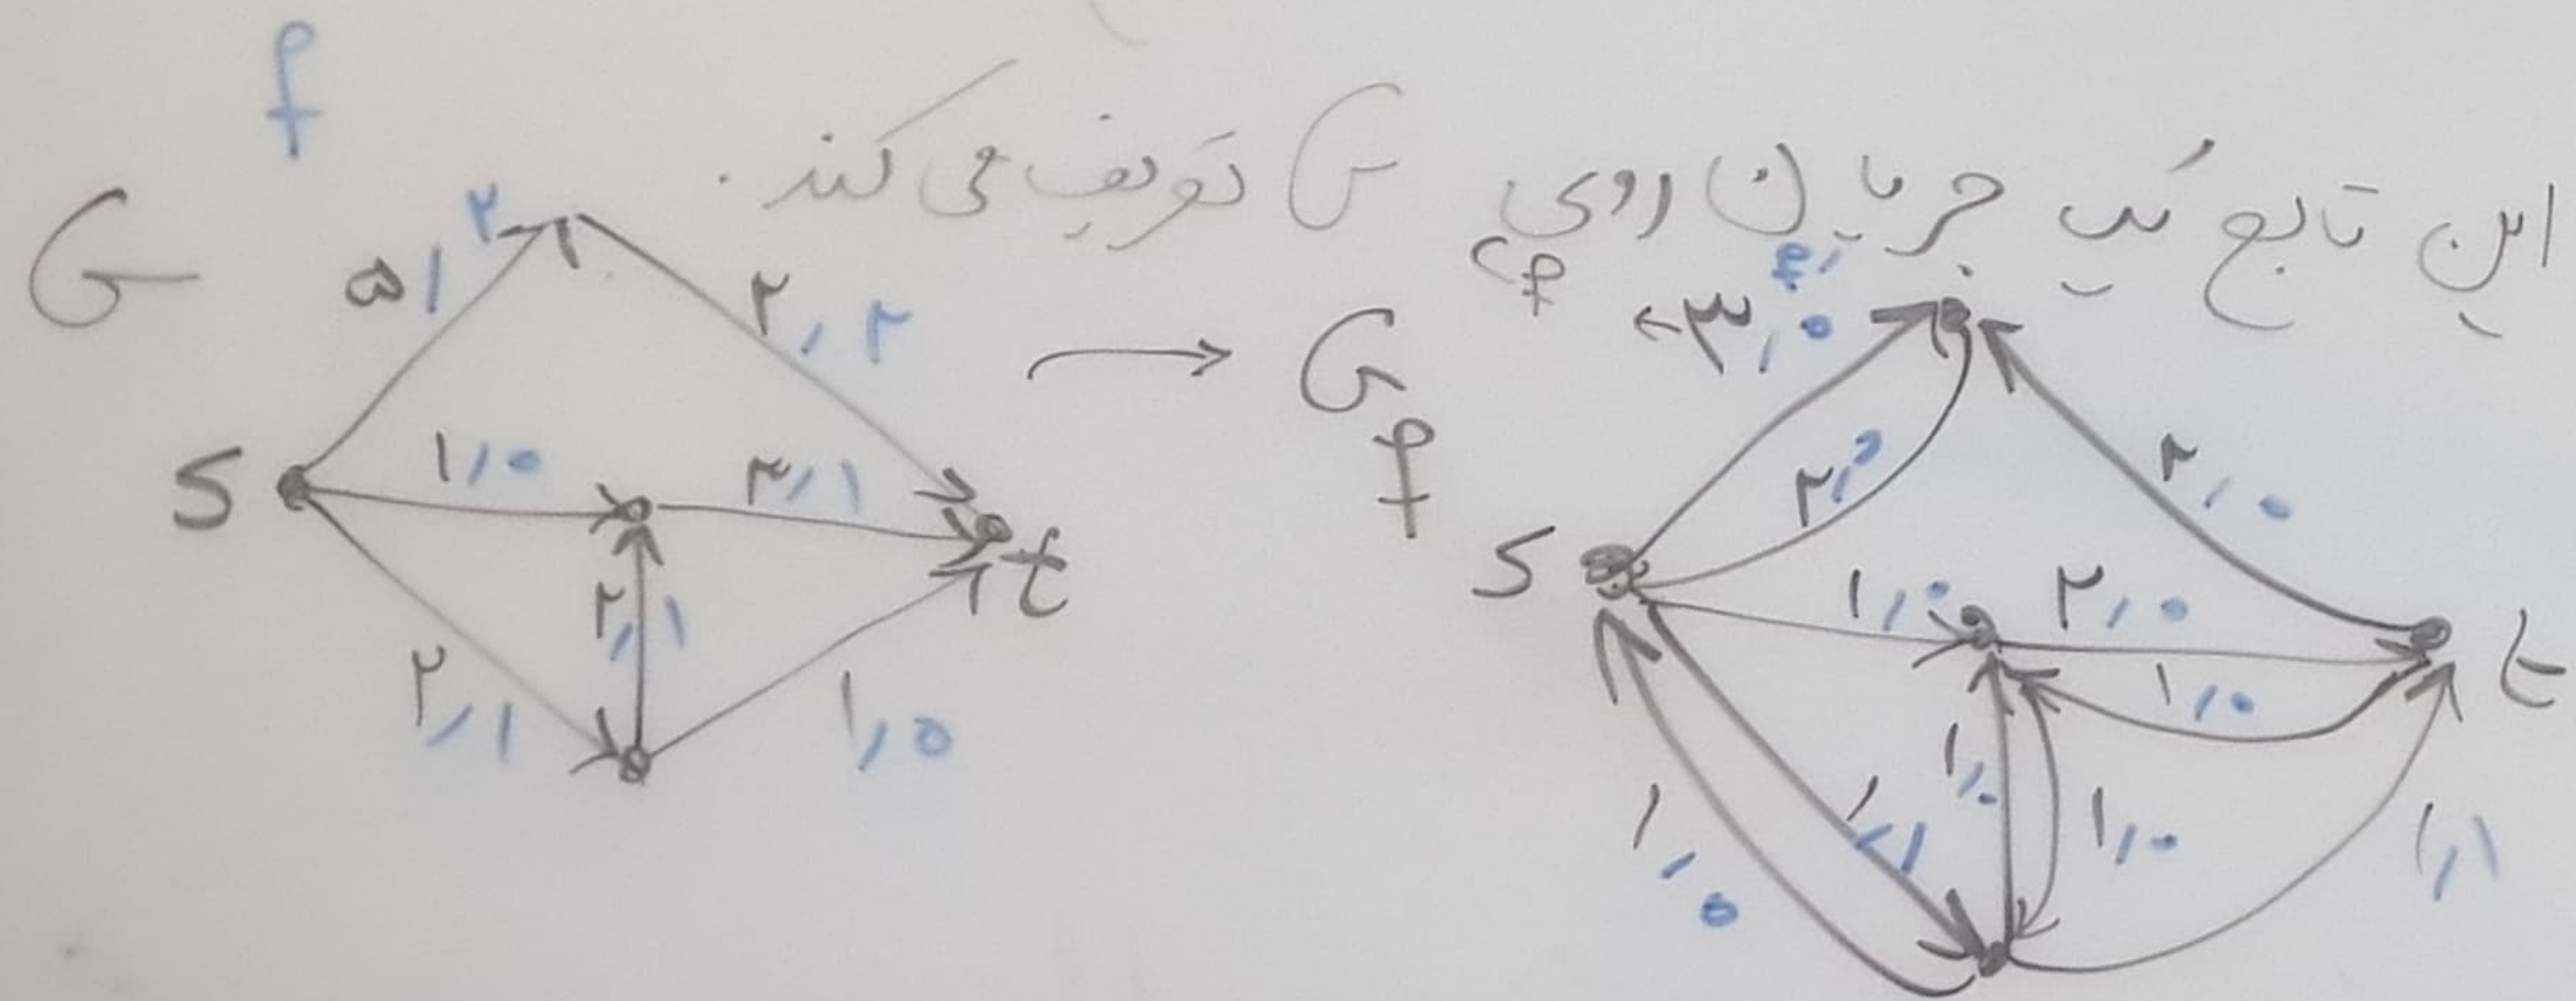 f
این تابع یک جریان روی G تعریف می‌کند.
G
۵/۲
۲/۲
S
۱/۰
۳/۱
t
۲/۱
۲/۱
۱/۰
→ G_f
c_f ← ۳/۰
f'
۲/۰
۲/۰
S
۱/۰
۲/۰
۱/۰
t
۱/۰
۱/۱
۱/۰
۱/۰
۱/۱